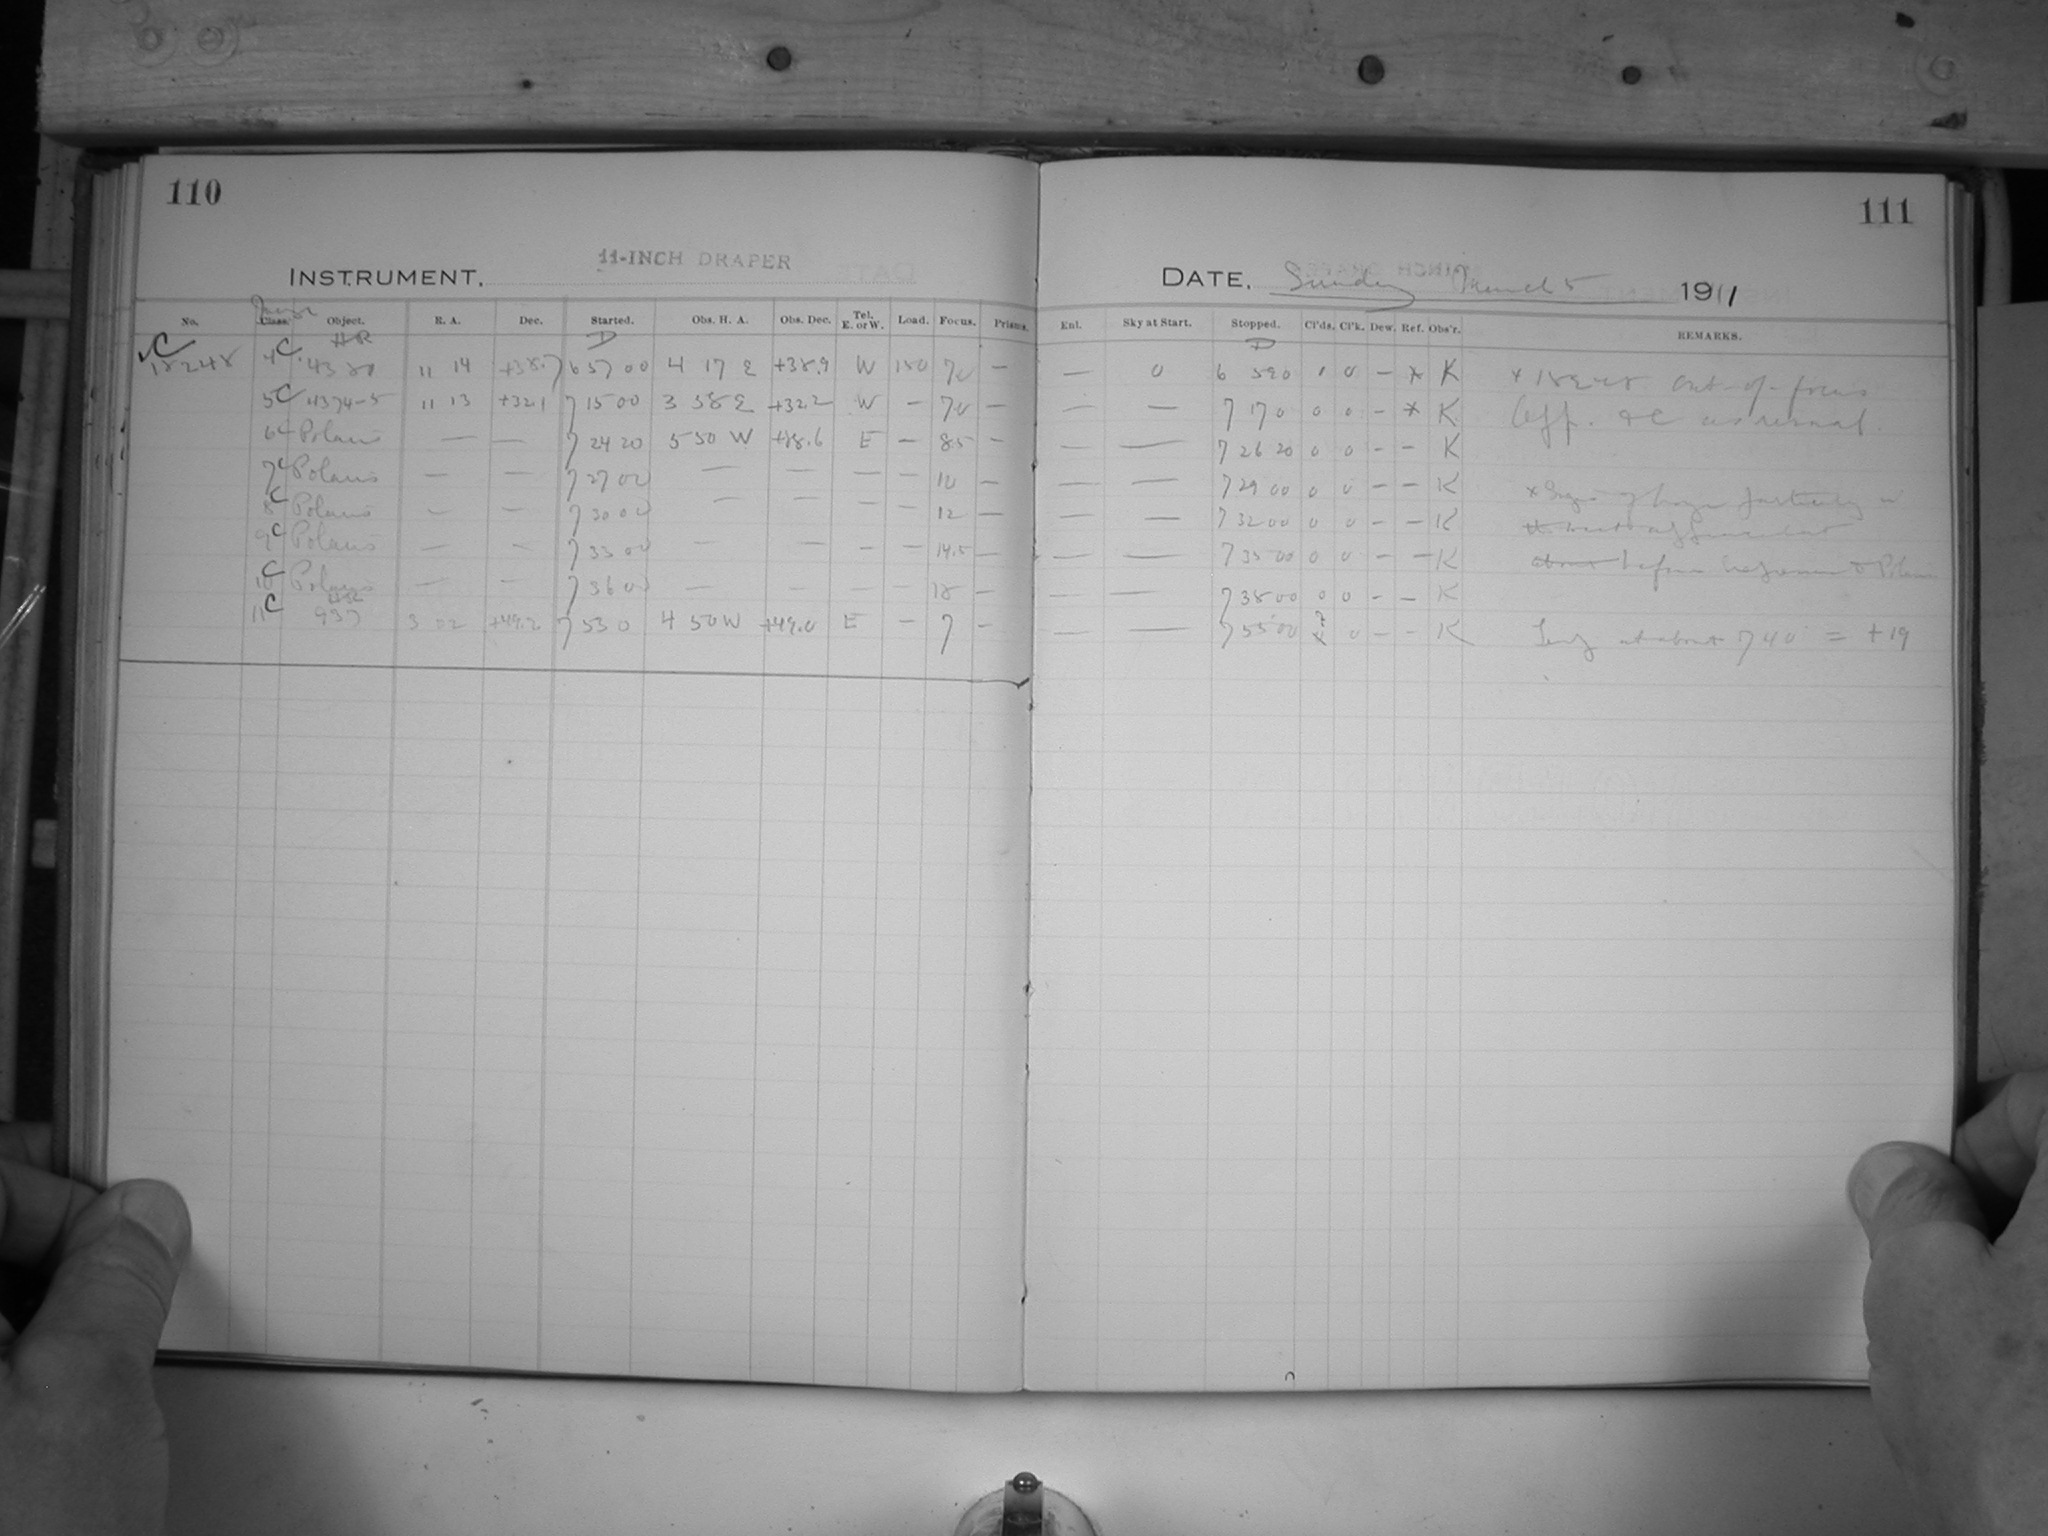 110
111
11-INCH DRAPER
INSTRUMENT.
DATE. Sunday March 5 1911
No. Class. Object. R. A. Dec. Started. Obs. H. A. Obs. Dec. Tel. E. or W. Load. Focus. Prisms. Enl. Sky at Start. Stopped. Cl'ds. Cl'k. Dew. Ref. Obs'r. REMARKS.
HR D D
C 18248 4 C 11 14 +38.7 6 57 00 4 17 E +38.9 W 150 70 — — 0 6 59 0 0 — * K * 18248 Out-of-focus
5 C 4374-5 11 13 +32.1 7 15 00 3 58 E +32.2 W — 70 — — — 7 17 0 0 0 — * K &c as usual.
6 C Polaris — — 7 24 20 5 50 W +88.6 E — 85 — — — 7 26 20 0 0 — — K
7 C Polaris — — 7 27 00 — — — — 10 — — — 7 29 00 0 0 — — K
8 C Polaris — — 7 30 00 — — — — 12 — — — 7 32 00 0 0 — — K
9 C Polaris — — 7 33 00 — — — — 14.5 — — — 7 35 00 0 0 — — K
10 C Polaris — — 7 36 00 — — — — 18 — — — 7 38 00 0 0 — — K
HR
11 C 937 3 02 +49.2 7 53 0 4 50 W +49.0 E — 7 — — — 7 55 00 0 — — K at about 7 40 = +19